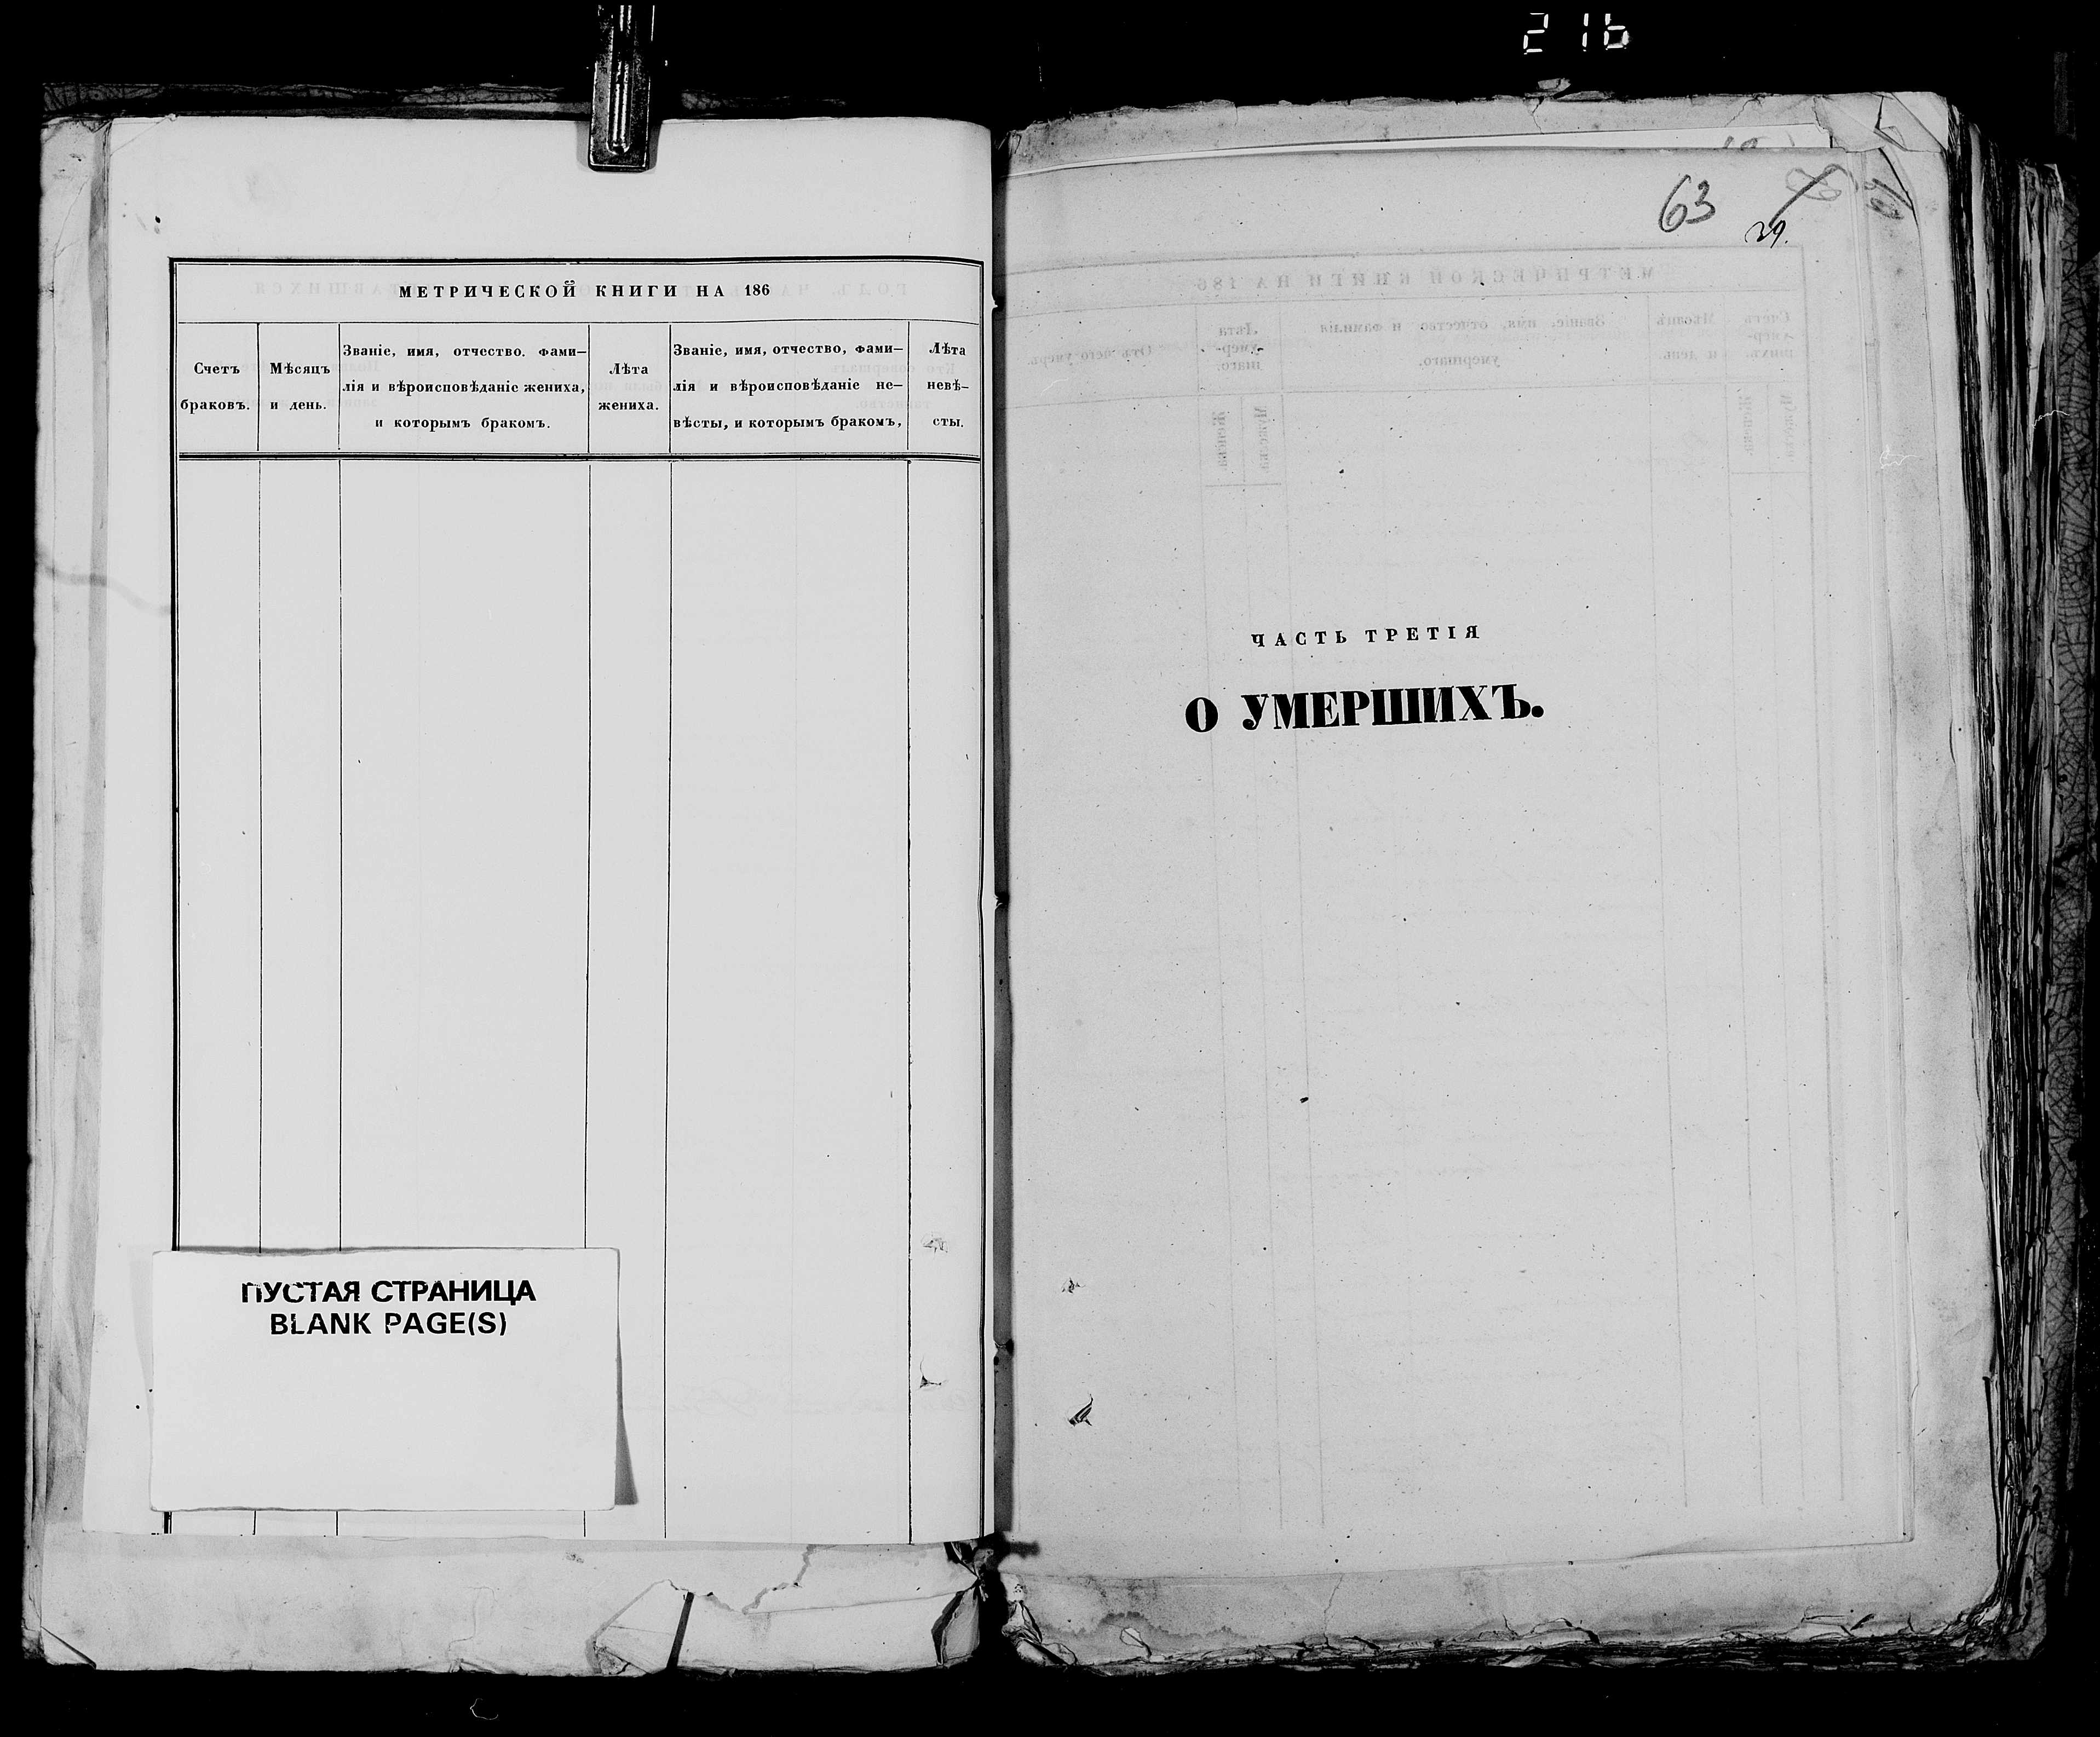 216
МЕТРИЧЕСКОЙ КНИГИ НА 186
Счетъ
браковъ.
Мѣсяцъ
и день.
Званіе, имя, отчество. фами—
лія и вѣроисповѣданіе жениха,
и которымъ бракомъ.
Лѣта
жениха.
Званіе, имя, отчество, фами—
лія и вѣроисповѣданіе не—
вѣсты, и которымъ бракомъ,
Лѣта
невѣ—
сты.
ПУСТАЯ СТРАНИЦА
BLANK PAGE(S)
63
39.
ЧАСТЬ ТРЕТІЯ
О УМЕРШИХЪ.